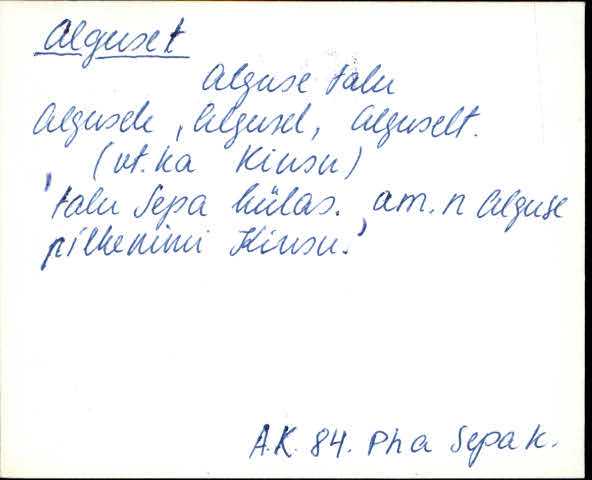 Alguset
Alguse talu
Algusele, Algusel, Alguselt.
(vt. ka Kiusu)
'talu Sepa külas. am. n Alguse
pilkenimi Kiusu.'
A.K. 84. Pha Sepa k.